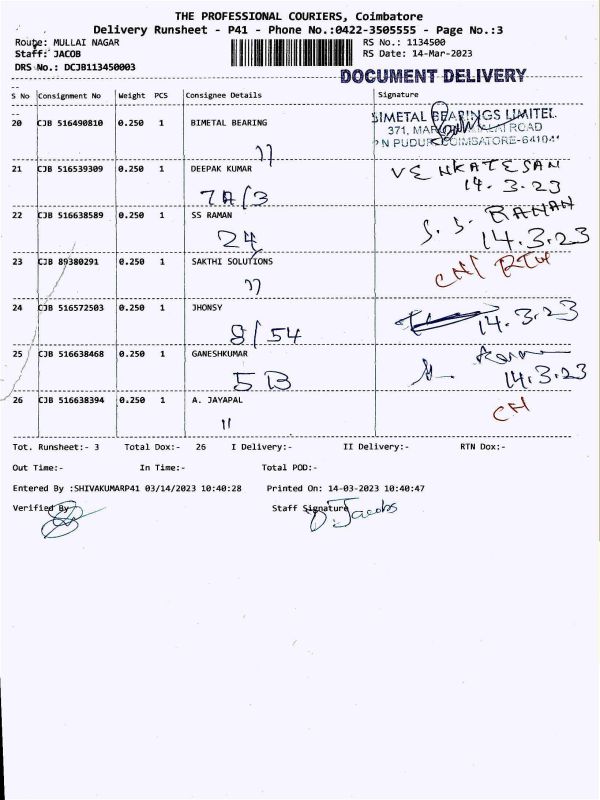 THE PROFESSIONAL COURIERS, Coimbatore
Delivery Runsheet - P41 - Phone No.:0422-3505555 - Page No.:3
Route: MULLAI NAGAR RS No.: 1134500
Staff: JACOB RS Date: 14-Mar-2023
DRS No.: DCJB113450003
DOCUMENT DELIVERY
S No Consignment No Weight PCS Consignee Details Signature
20 CJB 516490810 0.250 1 BIMETAL BEARING
BIMETAL BEARINGS LIMITED
371, ROAD
COIMBATORE-641041
21 CJB 516539309 0.250 1 DEEPAK KUMAR VENKATESAN
7A/3 14.3.23
22 CJB 516638589 0.250 1 SS RAMAN S.S. RAMAN
24 14.3.23
23 CJB 89380291 0.250 1 SAKTHI SOLUTIONS
24 CJB 516572503 0.250 1 JHONSY 14.3.23
8/54
25 CJB 516638468 0.250 1 GANESHKUMAR
5B 14.3.23
26 CJB 516638394 0.250 1 A. JAYAPAL
11
Tot. Runsheet:- 3 Total Dox:- 26 I Delivery:- II Delivery:- RTN Dox:-
Out Time:- In Time:- Total POD:-
Entered By :SHIVAKUMARP41 03/14/2023 10:40:28 Printed On: 14-03-2023 10:40:47
Verified By Staff Signature
D. Jacobs